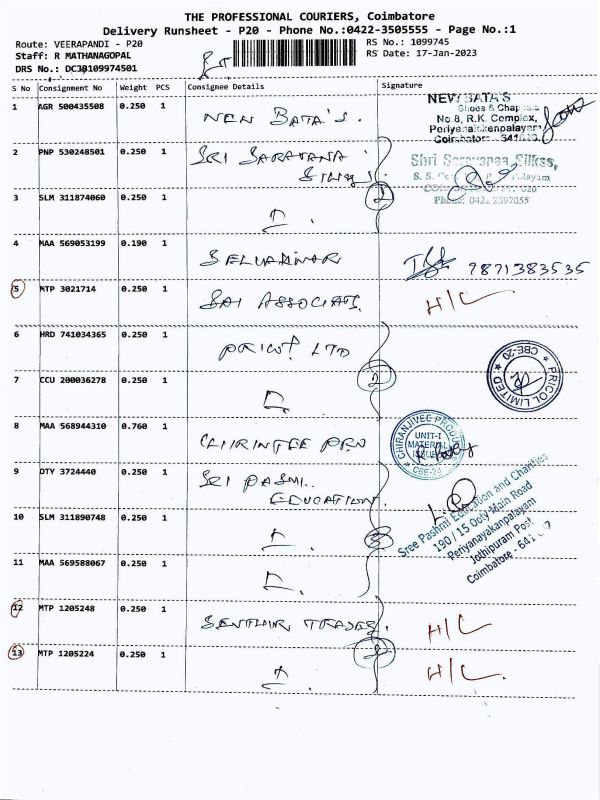 THE PROFESSIONAL COURIERS, Coimbatore
Delivery Runsheet - P20 - Phone No.:0422-3505555 - Page No.:1
Route: VEERAPANDI - P20 RS No.: 1099745
Staff: R MATHANAGOPAL RS Date: 17-Jan-2023
DRS No.: DC3B109974501
S No Consignment No Weight PCS Consignee Details Signature
1 AGR 500435508 0.250 1 NEW BATA'S.
NEW BATA'S
Shoes & Chappals
No.8, R.K. Complex,
Periyanaickenpalayam
Coimbatore - 641020
2 PNP 530248501 0.250 1 SRI SARAVANA
SILKS
Shri Saravanaa Silkss,
Phone: 0422 2697055
3 SLM 311874060 0.250 1 2
4 MAA 569053199 0.190 1 SELVARINAR 9871383535
5 MTP 3021714 0.250 1 SAI ASSOCIATS. H/C
6 HRD 741034365 0.250 1 PRICOL LTD
PRICOL LIMITED ★ CBE-20 ★
7 CCU 200036278 0.250 1 2
8 MAA 568944310 0.760 1
CHIRANJIVEE PRODU
UNIT-I
MATERIAL
ISSUE
★ CBE-20
9 DTY 3724440 0.250 1 SRI PASMI
EDUCATION
Sree Pashmi Education and Charities
190 / 15 Ooty Main Road
Periyanayakanpalayam
Jothipuram Post
Coimbatore - 641 047
10 SLM 311890748 0.250 1 3
11 MAA 569588067 0.250 1
12 MTP 1205248 0.250 1 H/C
13 MTP 1205224 0.250 1 2 H/C